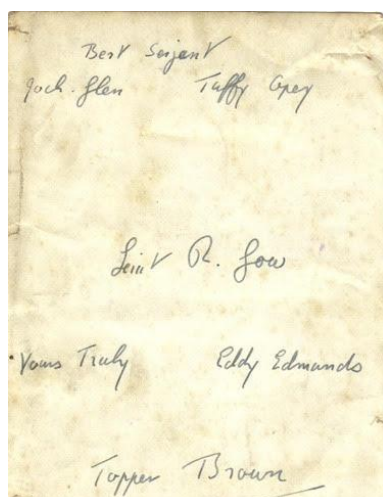 Bert Serjent
Jock. Glen Taffy
Leiut R. Gow
Yours Truly Eddy Edmunds
Topper Brown